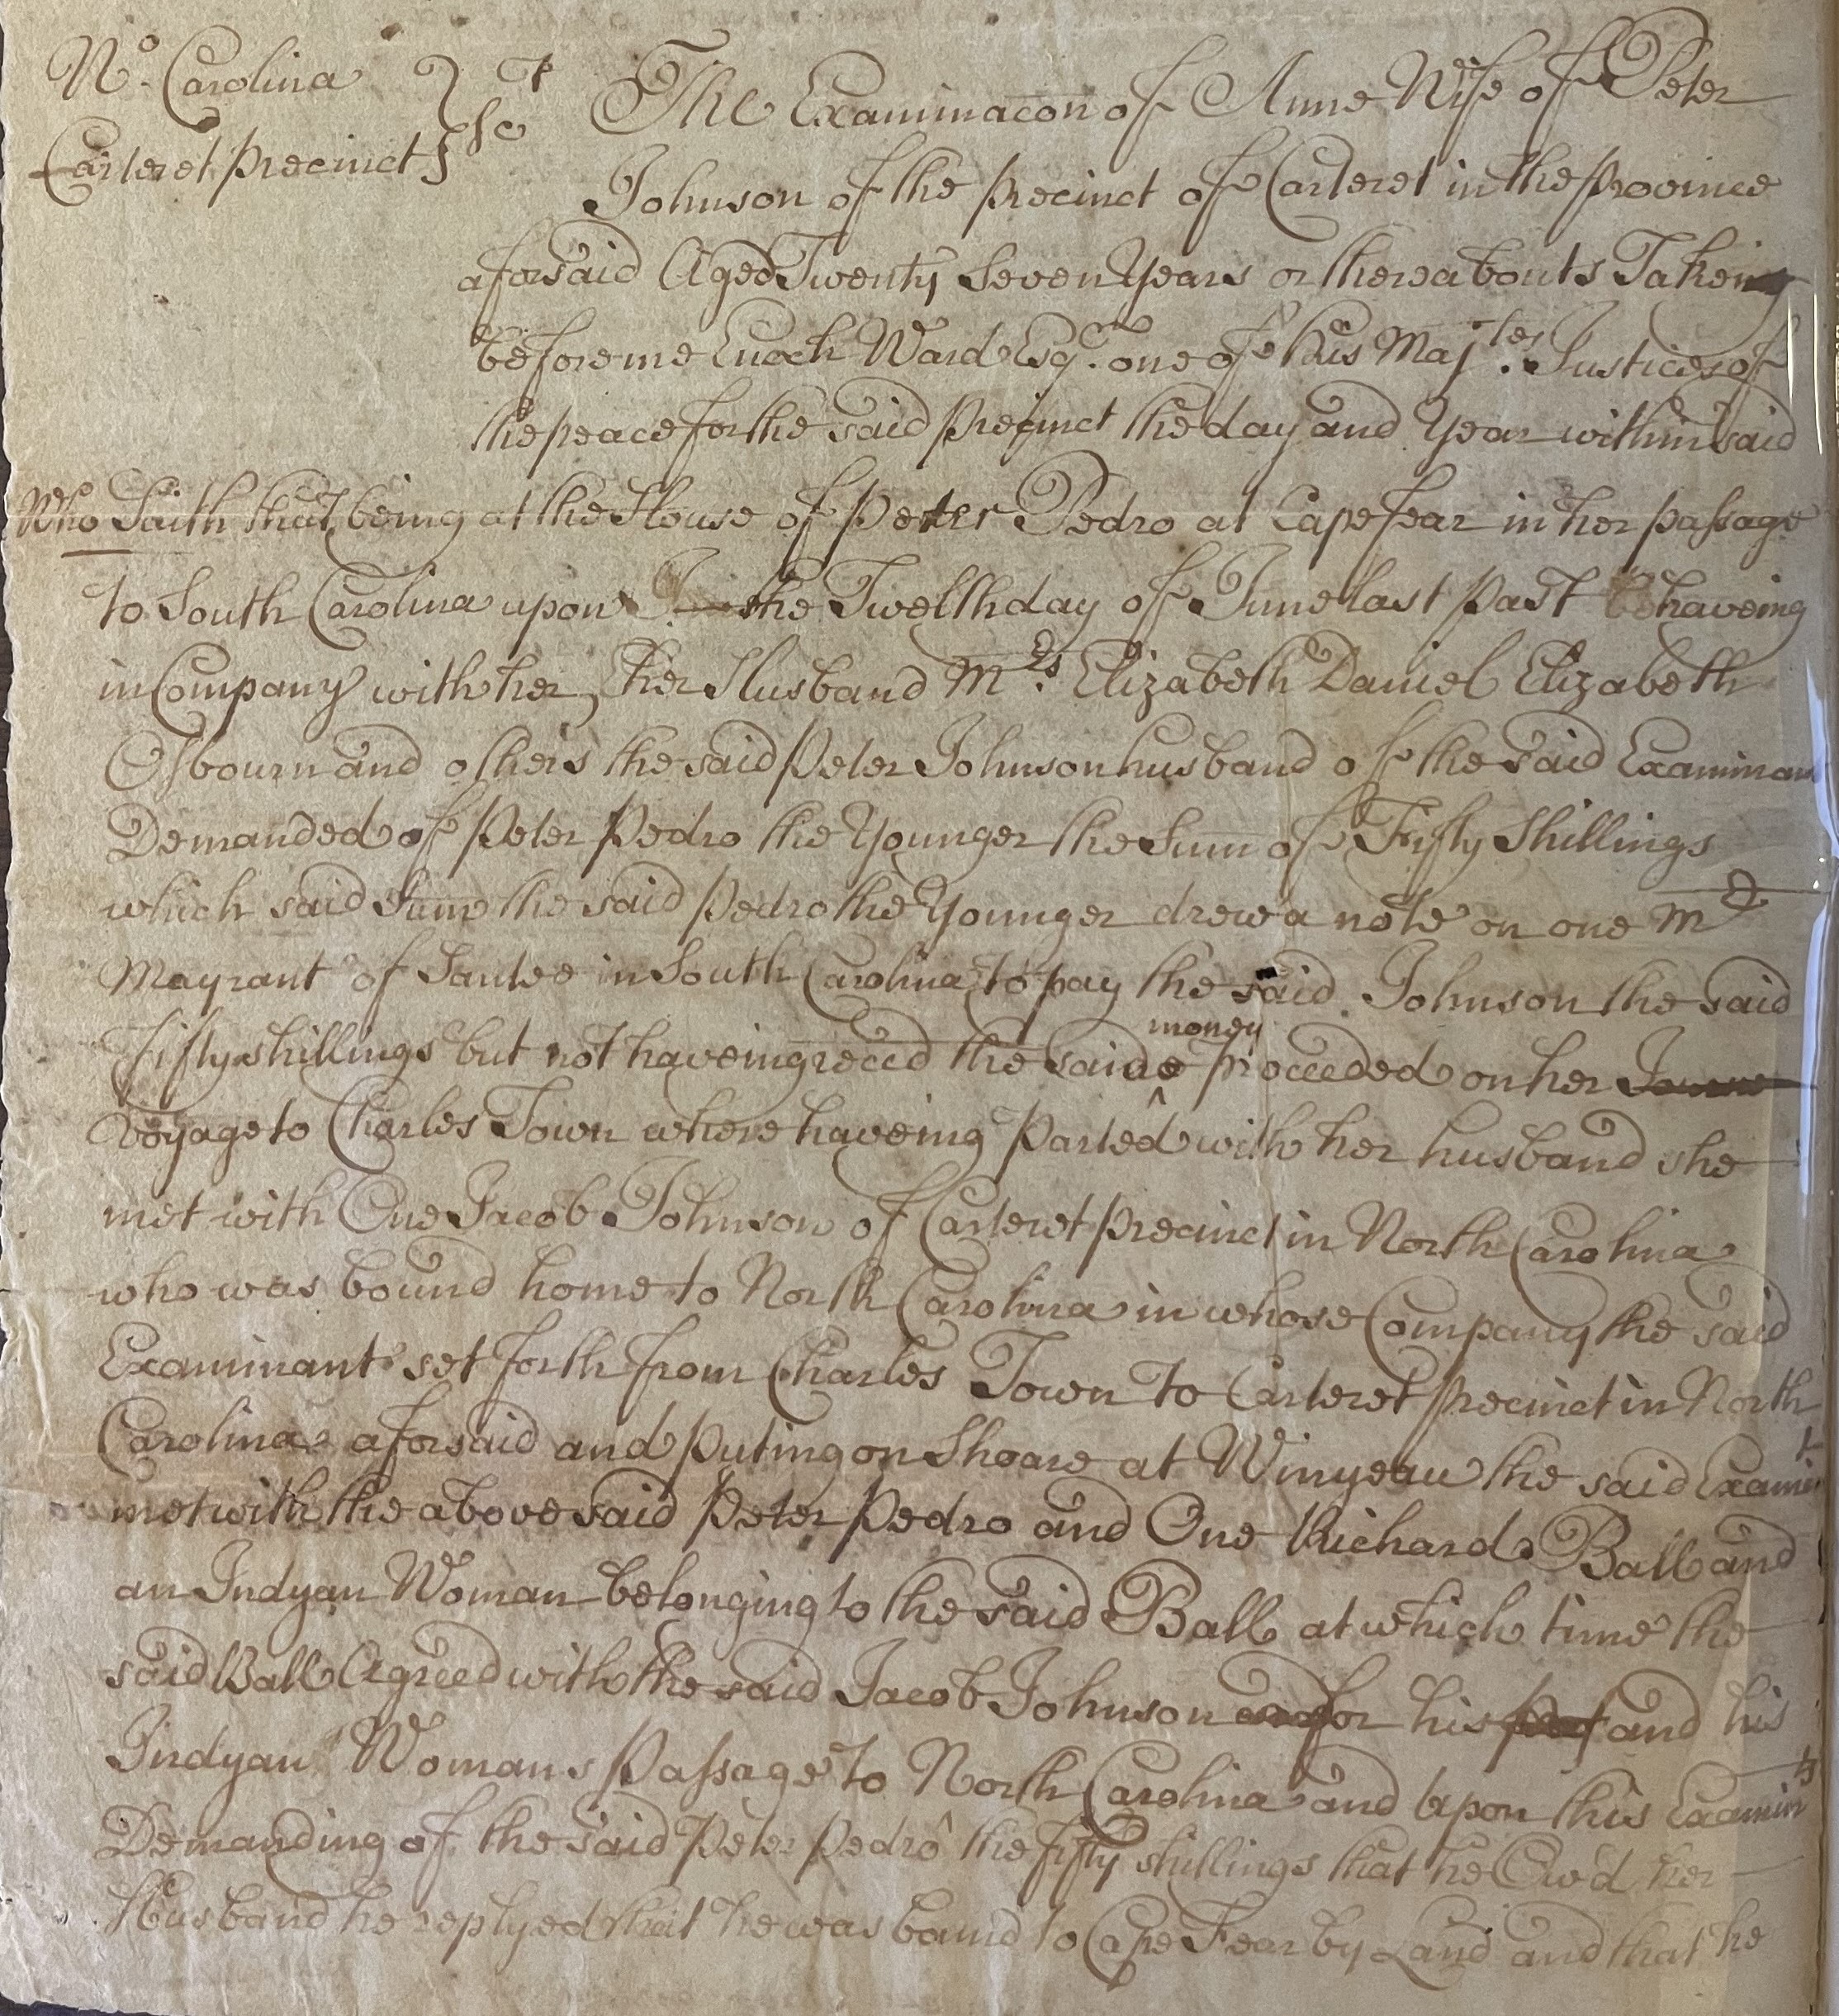 No. Carolina } sct
Carteret precinct }
The Examinacon of Anne Wife of Peter
Johnson of the precinct of Carteret in the province
aforsaid Aged Twenty Seven Years or thereabouts Taken
before me Enoch Ward Esqr. one of his Majties. Justices of
the peace for the said precinct the day and Year within said
Who Saith that being at the House of Peter Pedro at Cape fear in her passage
to South Carolina upon the Twelth day of June last past haveing
in Company with her, & her Husband Mrs. Elizabeth Daniel Elizabeth
Osbourn and others the said Peter Johnson husband of the said Examinant
Demanded of Peter Pedro the Younger the Sum of Fifty Shillings
which said Sum the said Pedro the Younger drew a note on one Mr
Mayrant of Santee in South Carolina to pay the said Johnson the said
fifty shillings but not haveing recd the said money proceeded on her
Voyage to Charles Town where haveing Parted with her husband she
met with One Jacob Johnson of Carteret precinct in North Carolina
who was bound home to North Carolina in whose Company the said
Examinant set forth from Charles Town to Carteret precinct in North
Carolina aforsaid and puting on Shoare at Winyeau the said Examint
met with the above said Peter Pedro and One Richard Ball and
an Indyan Woman belonging to the said Ball at which time the
said Ball Agreed with the said Jacob Johnson for his and his
Indyan Womans passage to North Carolina and upon this Examints
Demanding of the said Peter Pedro the fifty shillings that he Ow'd her
Husband he replyed that he was bound to Cape Fear by Land and that he